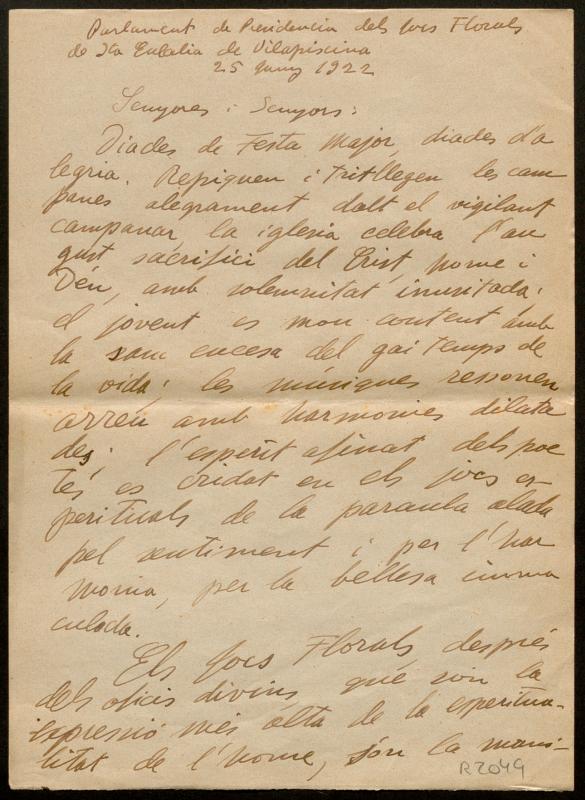 Parlament de Presidencia dels Jocs Florals
de Sta Eulalia de Vilapiscina
25 Juny 1922
Senyores i Senyors:
Diades de Festa Major, diades d'a
legria. Repiquen i tritllegen les cam
panes alegrament dalt el vigilant
campanar, la iglesia celebra l'au
gust sacrifici del Crist, home i
Déu, amb solemnitat inusitada;
el jovent es mou content amb
la sanc encesa del gai temps de
la vida; les músiques ressonen
arreu amb harmonies dilata
des; l'esperit afinat dels poe
tes es cridat en els jocs es-
perituals de la paraula alada
pel sentiment i per l'har
monia, per la bellesa imma
culada.
Els Jocs Florals, després
dels oficis divins que són la
expressió més alta de la esperitua-
litat de l'home, són la mani-
R 2049